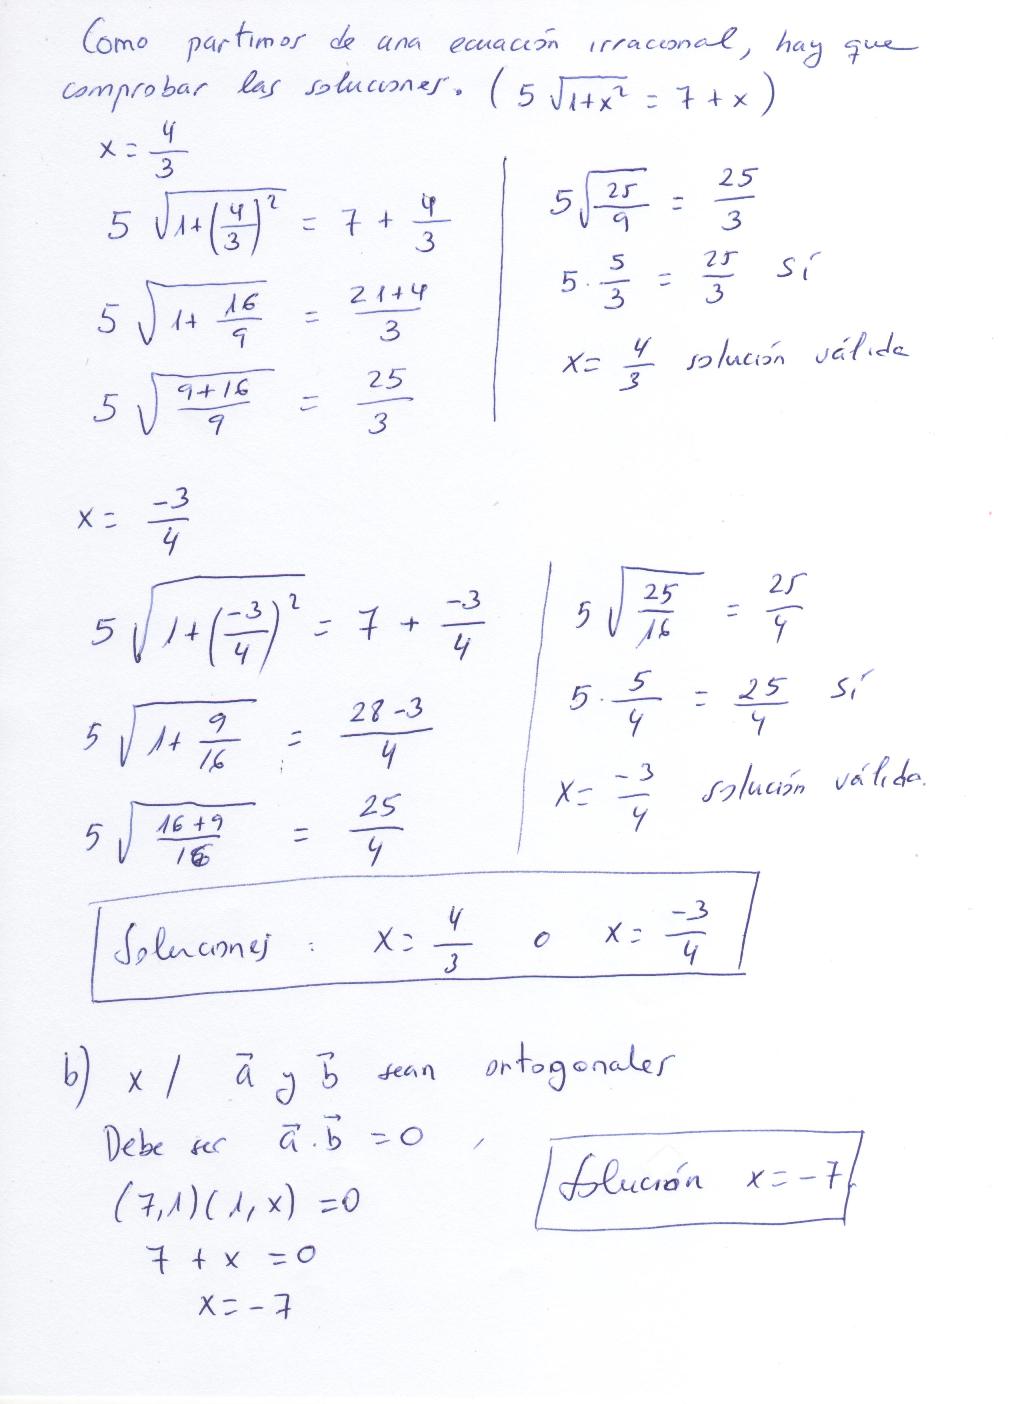 Como partimos de una ecuación irracional, hay que
comprobar las soluciones. (5√(1+x²) = 7+x)
x = 4/3
5√(1+(4/3)²) = 7 + 4/3
5√(1+16/9) = (21+4)/3
5√((9+16)/9) = 25/3
5√(25/9) = 25/3
5·5/3 = 25/3 sí
x = 4/3 solución válida
x = -3/4
5√(1+(-3/4)²) = 7 + -3/4
5√(1+9/16) = (28-3)/4
5√((16+9)/16) = 25/4
5√(25/16) = 25/4
5·5/4 = 25/4 sí
x = -3/4 solución válida.
Soluciones : x = 4/3 o x = -3/4
b) x / a⃗ y b⃗ sean ortogonales
Debe ser a⃗·b⃗ = 0,
(7,1)(1,x) = 0
7 + x = 0
x = -7
Solución x = -7